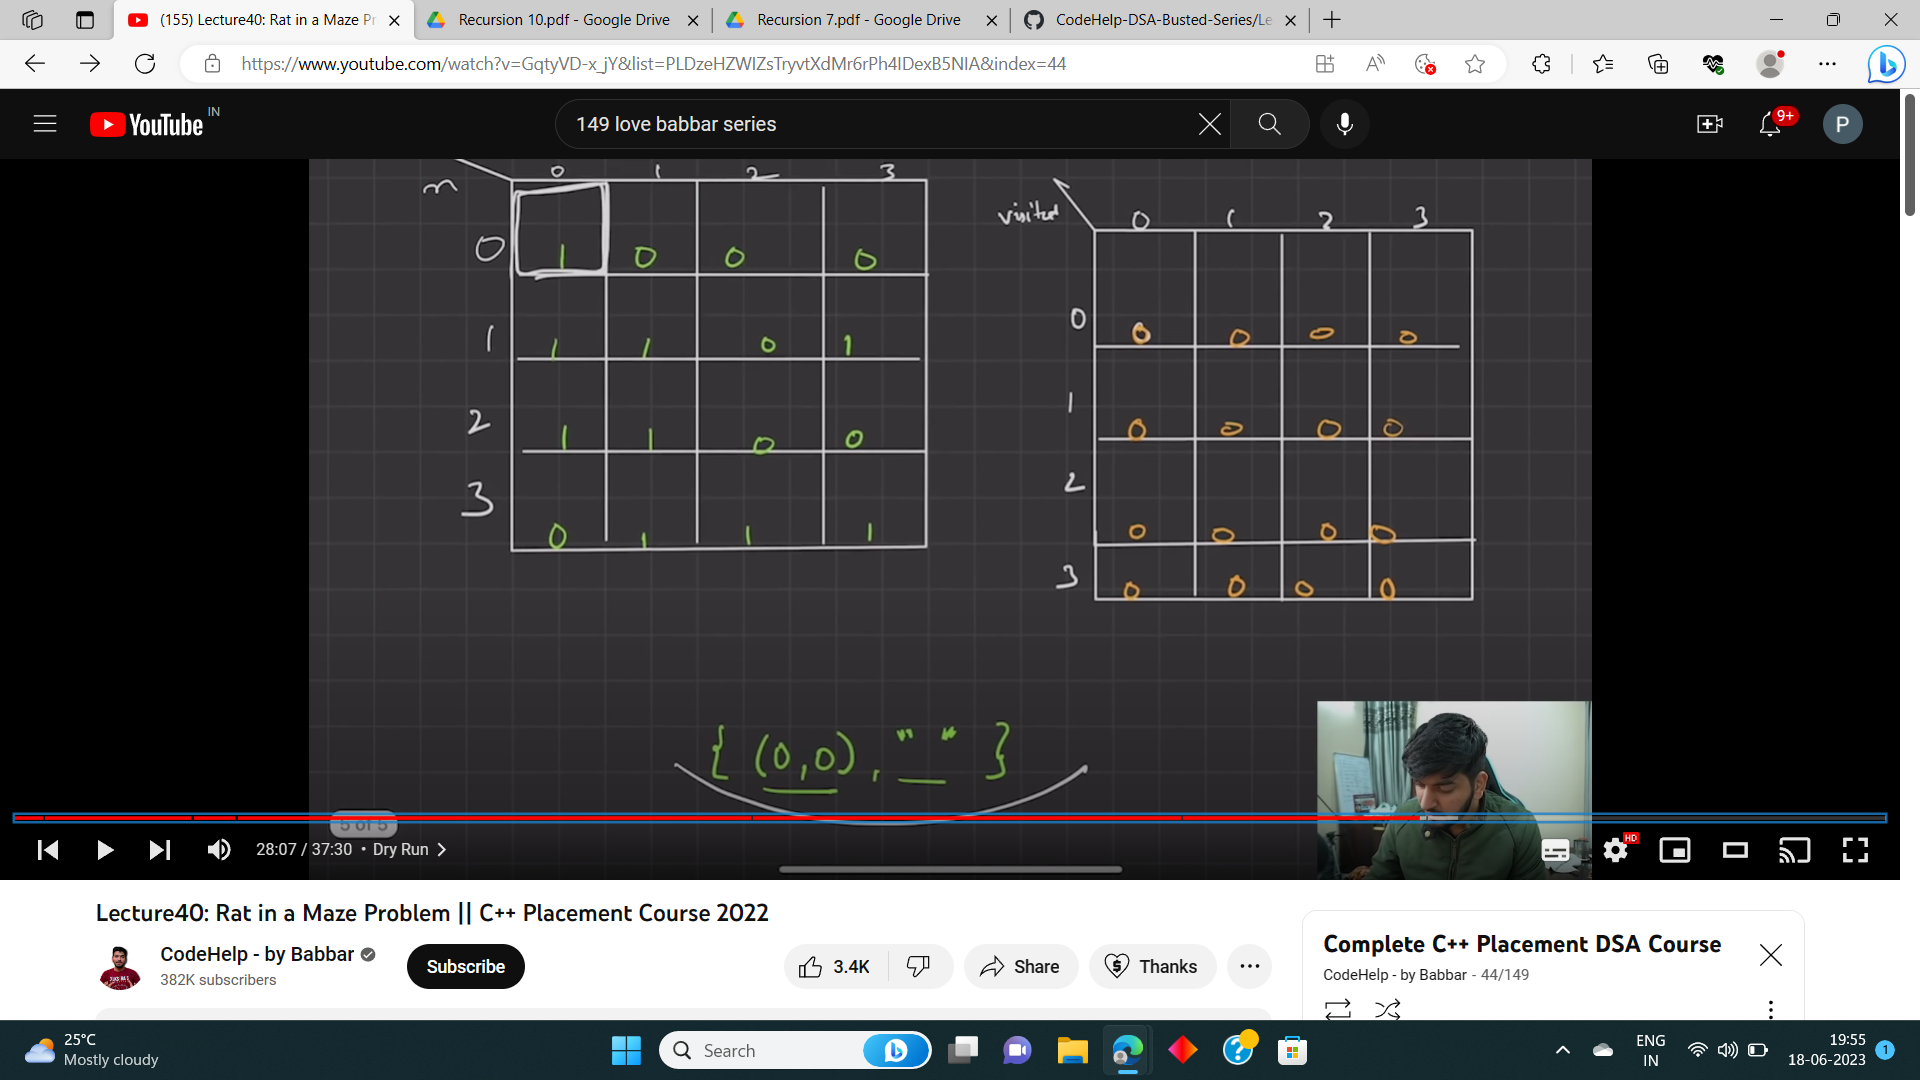 (155) Lecture40: Rat in a Maze Pr
Recursion 10.pdf - Google Drive
Recursion 7.pdf - Google Drive
CodeHelp-DSA-Busted-Series/Le
https://www.youtube.com/watch?v=GqtyVD-x_jY&list=PLDzeHZWIZsTryvtXdMr6rPh4IDexB5NIA&index=44
YouTube IN
149 love babbar series
9+
P
m 0 1 2 3
0 1 0 0 0
1 1 1 0 1
2 1 1 0 0
3 0 1 1 1
visited 0 1 2 3
0 0 0 0 0
1 0 0 0 0
2 0 0 0 0
3 0 0 0 0
{ (0,0), " " }
5 of 5
28:07 / 37:30 • Dry Run
HD
Lecture40: Rat in a Maze Problem || C++ Placement Course 2022
CodeHelp - by Babbar
382K subscribers
Subscribe
3.4K
Share
Thanks
Complete C++ Placement DSA Course
CodeHelp - by Babbar - 44/149
25°C
Mostly cloudy
Search
ENG
IN
19:55
18-06-2023
1